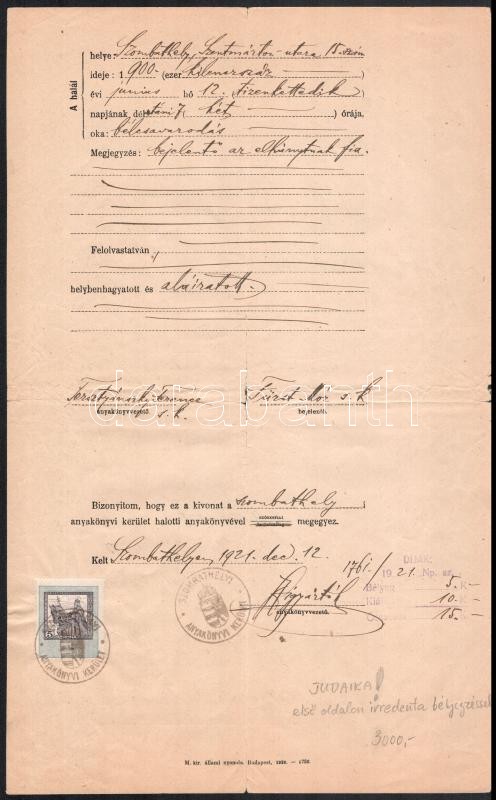 A halál
helye: Szombathely, Szentmárton-utca 15. szám
ideje: 1900. (ezer kilencszáz )
évi junius hó 12. (tizenkettedik )
napjának, délutáni 7 ( hét ) órája,
oka: bélcsavarodás
Megjegyzés: bejelentő az elhúnytnak fia.
Felolvastatván,
helybenhagyatott és aláiratott.
Ferencz s. k. Fürst Mór s. k.
anyakönyvvezető bejelentő.
darabanth
Bizonyitom, hogy ez a kivonat a szombathely
anyakönyvi kerület halotti anyakönyvével megegyez.
Kelt Szombathelyen, 1921. dec. 12.
1761/ DIJAK:
1921. Np. sz.
5.- K
anyakönyvvezető. 10.- K
15.- K
SZOMBATHELYI ANYAKÖNYVI KERÜLET
ANYAKÖNYVI KERÜLET
JUDAIKA!
első oldalon irredenta bélyegzéssel
3000,-
M. kir. állami nyomda. Budapest, 1920. —